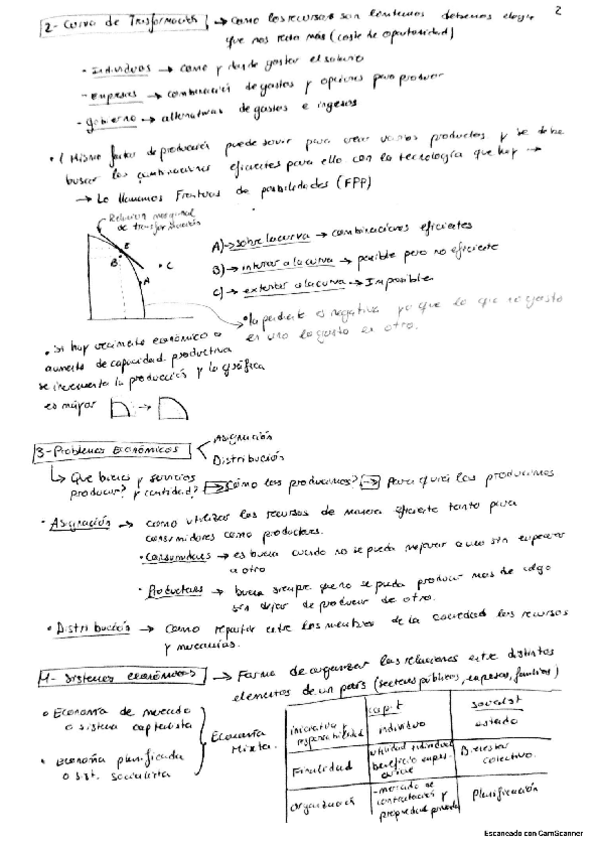 2
2- Curva de Transformación → Como los recursos son limitados debemos elegir
que nos renta más (coste de oportunidad)
- Individuos → como y donde gastar el salario
- Empresas → combinación de gastos y opciones para producir
- Gobierno → alternativas de gastos e ingresos
• 1 Mismo factor de producción puede servir para crear varios productos y se debe
buscar las combinaciones eficientes para ello con la tecnología que hay →
→ Lo llamamos Fronteras de posibilidades (FPP)
Relación marginal
de transformación
E
B
C
A
A) → sobre la curva → combinaciones eficientes
B) → interior a la curva → posible pero no eficiente
C) → exterior a la curva → Imposible
• la pendiente es negativa ya que lo que no gasto
en uno lo gasto en otro.
• Si hay crecimiento económico o
aumento de capacidad productiva
se incrementa la producción y la gráfica
es mayor →
3- Problemas Económicos
Asignación
Distribución
↳ Que bienes y servicios
producir? y cantidad? → Cómo los producimos? → Para quién los producimos
• Asignación → como utilizar los recursos de manera eficiente tanto para
consumidores como productores.
• Consumidores → es buena cuando no se pueda mejorar a uno sin empeorar
a otro
• Productores → buena siempre que no se pueda producir mas de algo
sin dejar de producir de otro.
• Distribución → Como repartir entre los miembros de la sociedad los recursos
y mercancías.
4- Sistemas económicos → Forma de organizar las relaciones entre distintos
elementos de un país (sectores públicos, empresas, familias)
• Economía de mercado
o sistema capitalista
• Economía planificada
o sist. socialista
Economía
Mixta.
capit
socialist
iniciativa y
responsabilidad
individuo
estado
Finalidad
utilidad individual
beneficio
Bienestar
colectivo.
Organización
- mercado de
contratación y
propiedad privada
Planificación
Escaneado con CamScanner